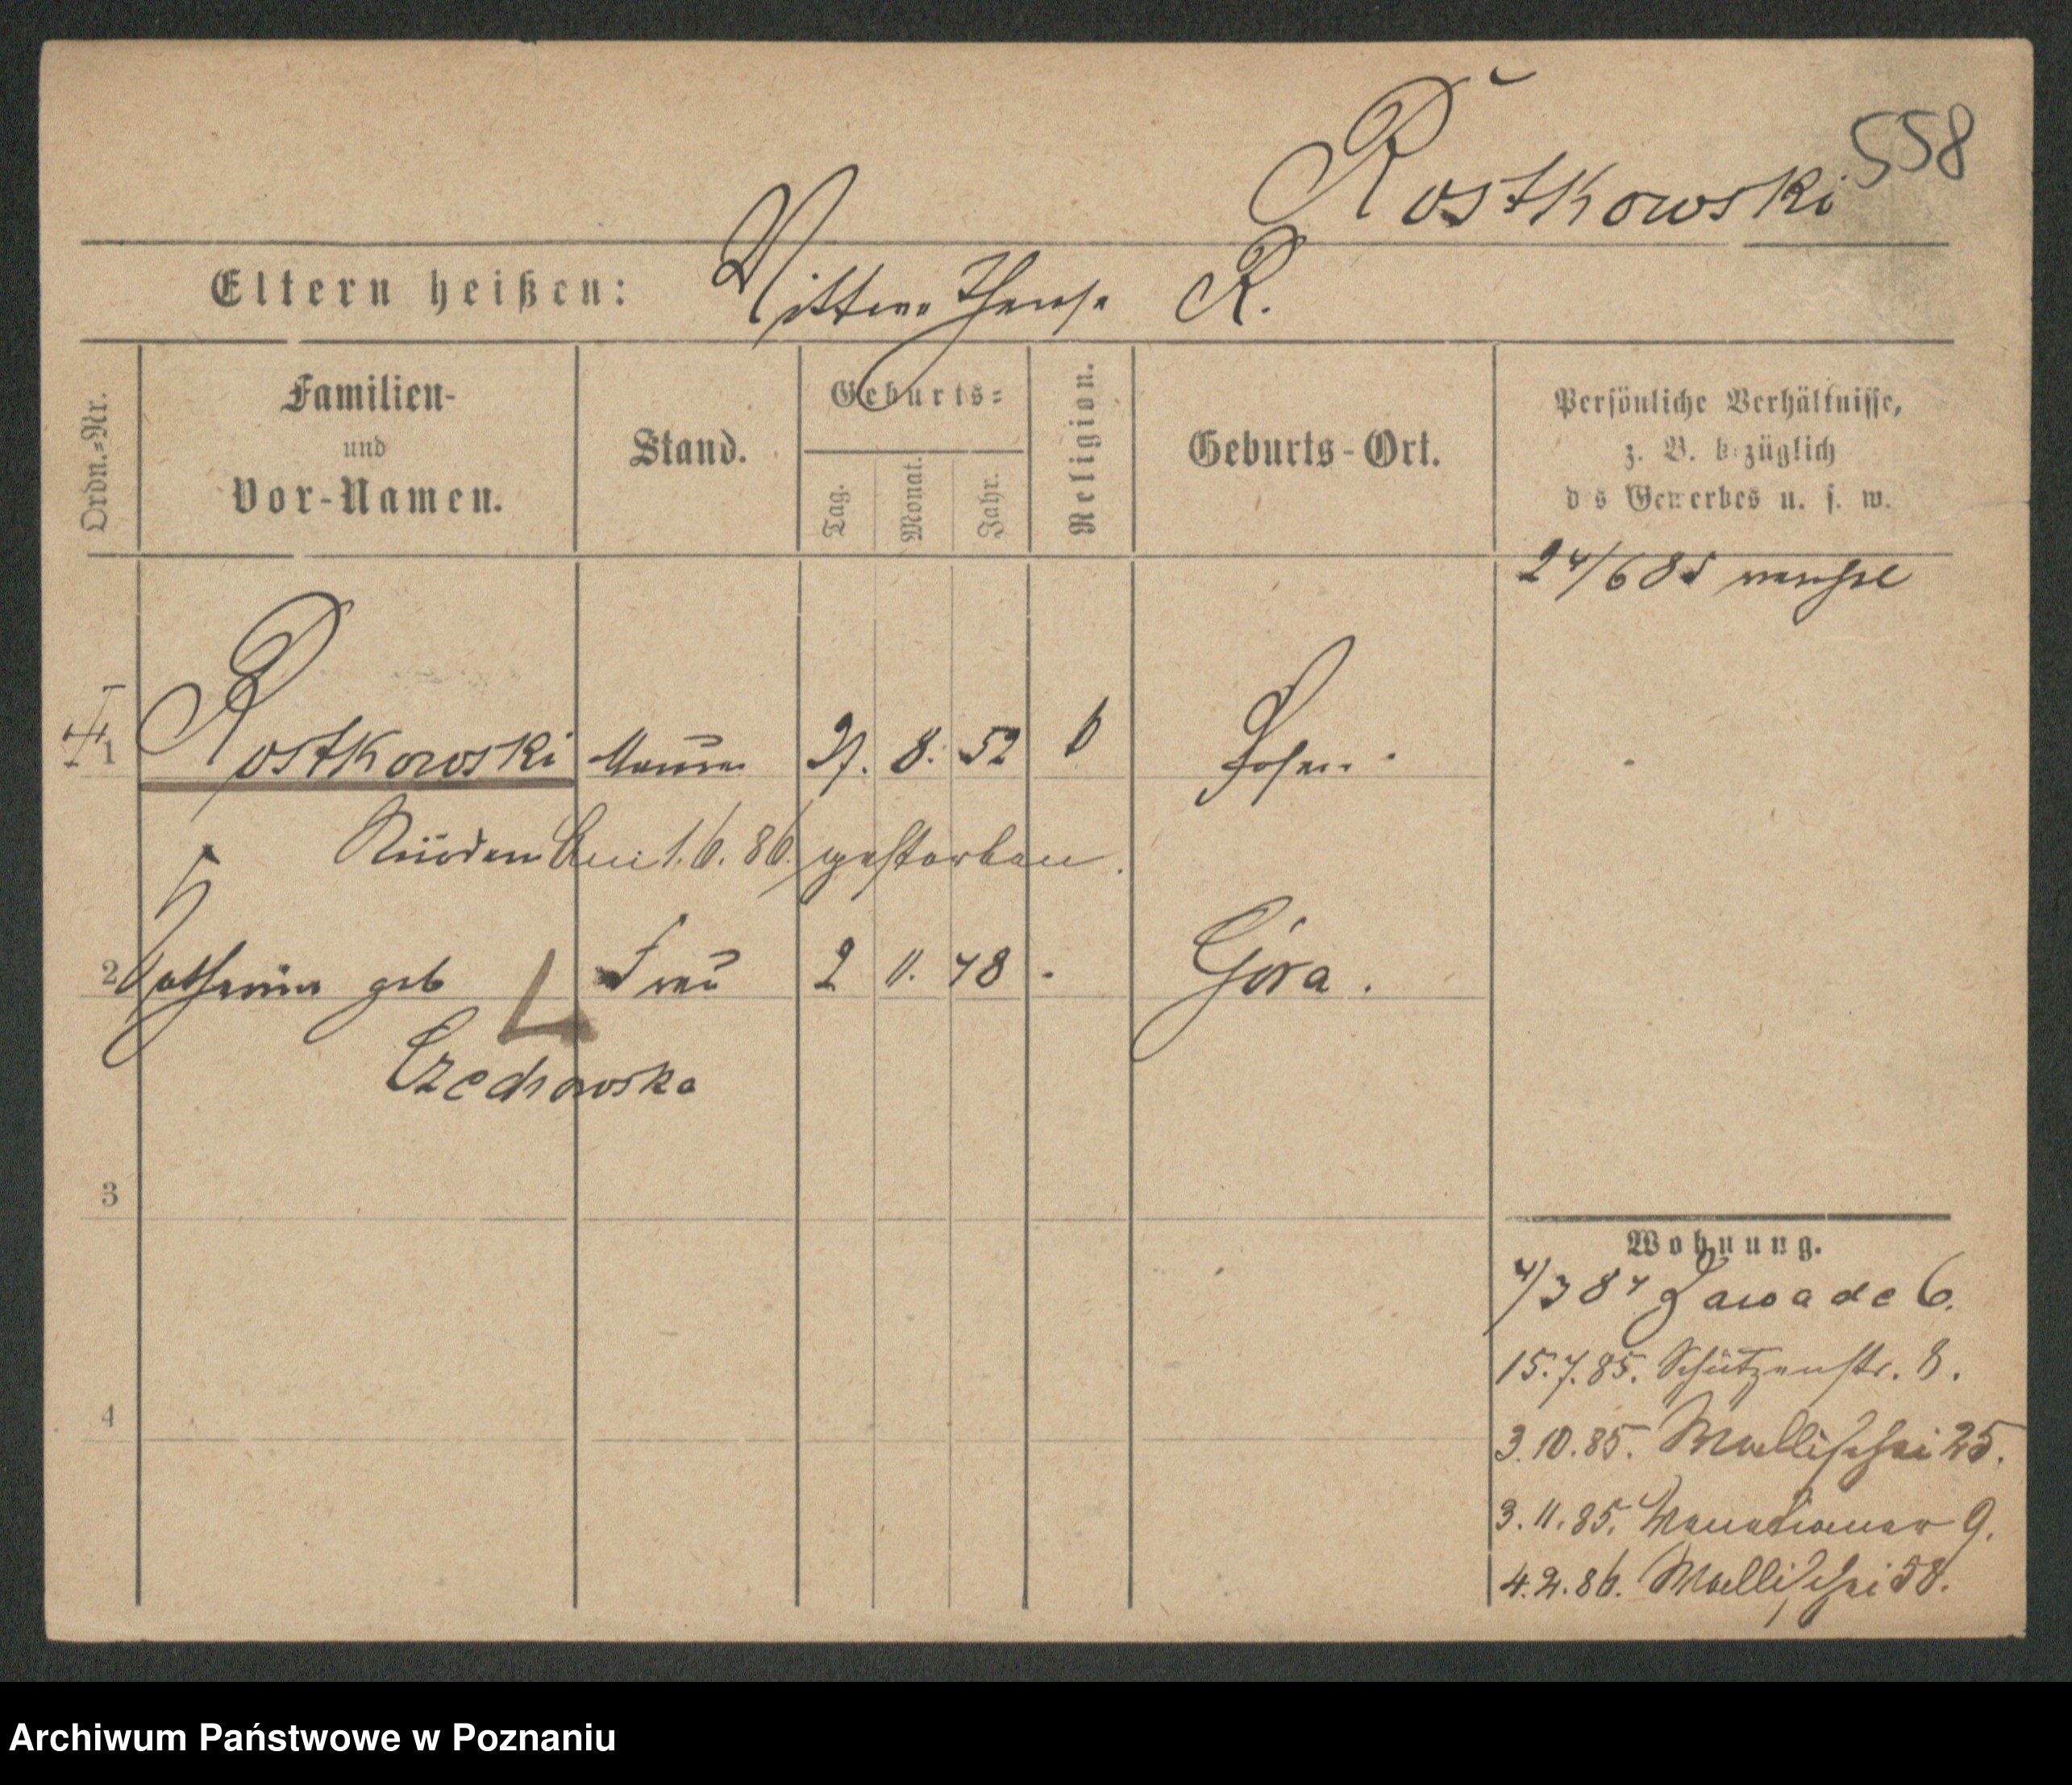 558
Rostkowski
Eltern heißen: Wittwe Therese R.
Ordn.=Nr.
Familien-
und
Vor-Namen.
Stand.
Geburts=
Tag.
Monat.
Jahr.
Religion.
Geburts-Ort.
Persönliche Verhältnisse,
z. B. bezüglich
des Gewerbes u. s. w.
24/6 85
1 Rostkowski Maurer 27. 8. 52 k Posen.
Am 1.6.86. gestorben.
2 Catharina geb Frau 2 11. 48 Góra.
Czechowska
3
4
Wohnung.
4/3 84 Zawade 6.
15.7.85. Schützenstr. 8.
3.10.85. Wallischei 25.
3.11.85. Venetianer 9.
4.2.86. Wallischei 58.
Archiwum Państwowe w Poznaniu